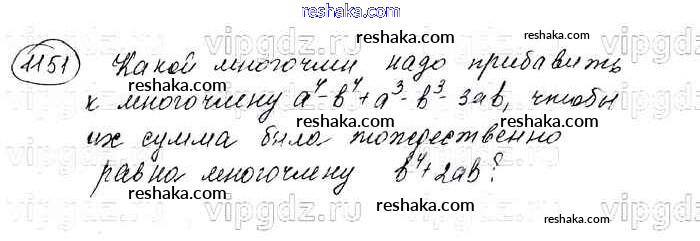 reshaka.com
1151 Какой многочлен надо прибавить
к многочлену a⁴-b⁴+a³-b³-3ab, чтобы
их сумма была тождественно
равна многочлену b⁴+2ab?
reshaka.com reshaka.com
reshaka.com reshaka.com
reshaka.com reshaka.com
reshaka.com reshaka.com
vipgdz.ru vipgdz.ru vipgdz.ru